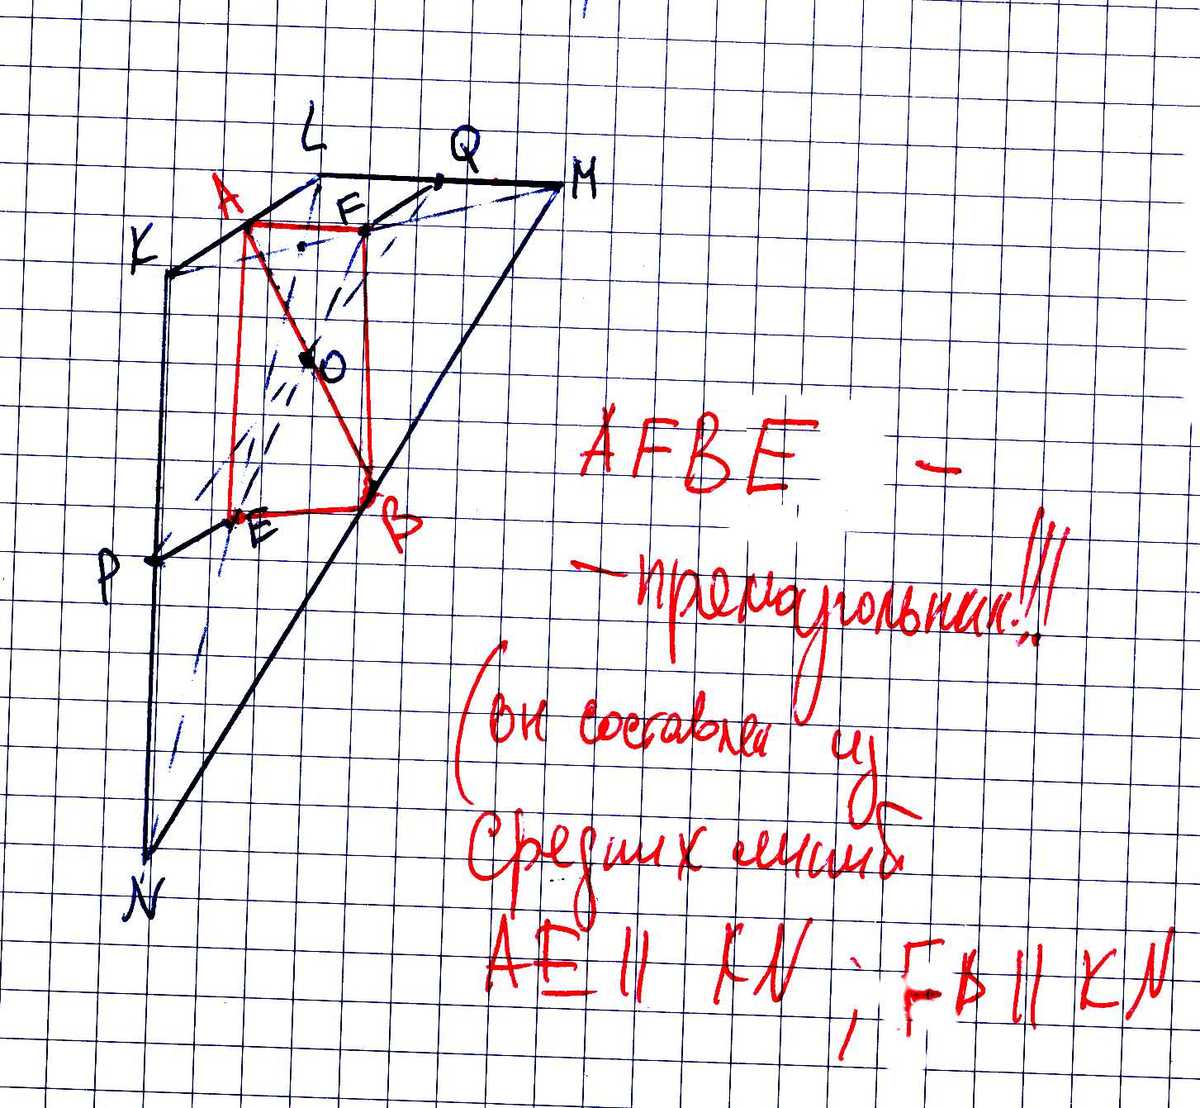 L
Q
M
A
F
K
O
E
B
P
N
AFBE –
– прямоугольник!!!
(он составлен из
средних линий
AE || KN ; FB || KN